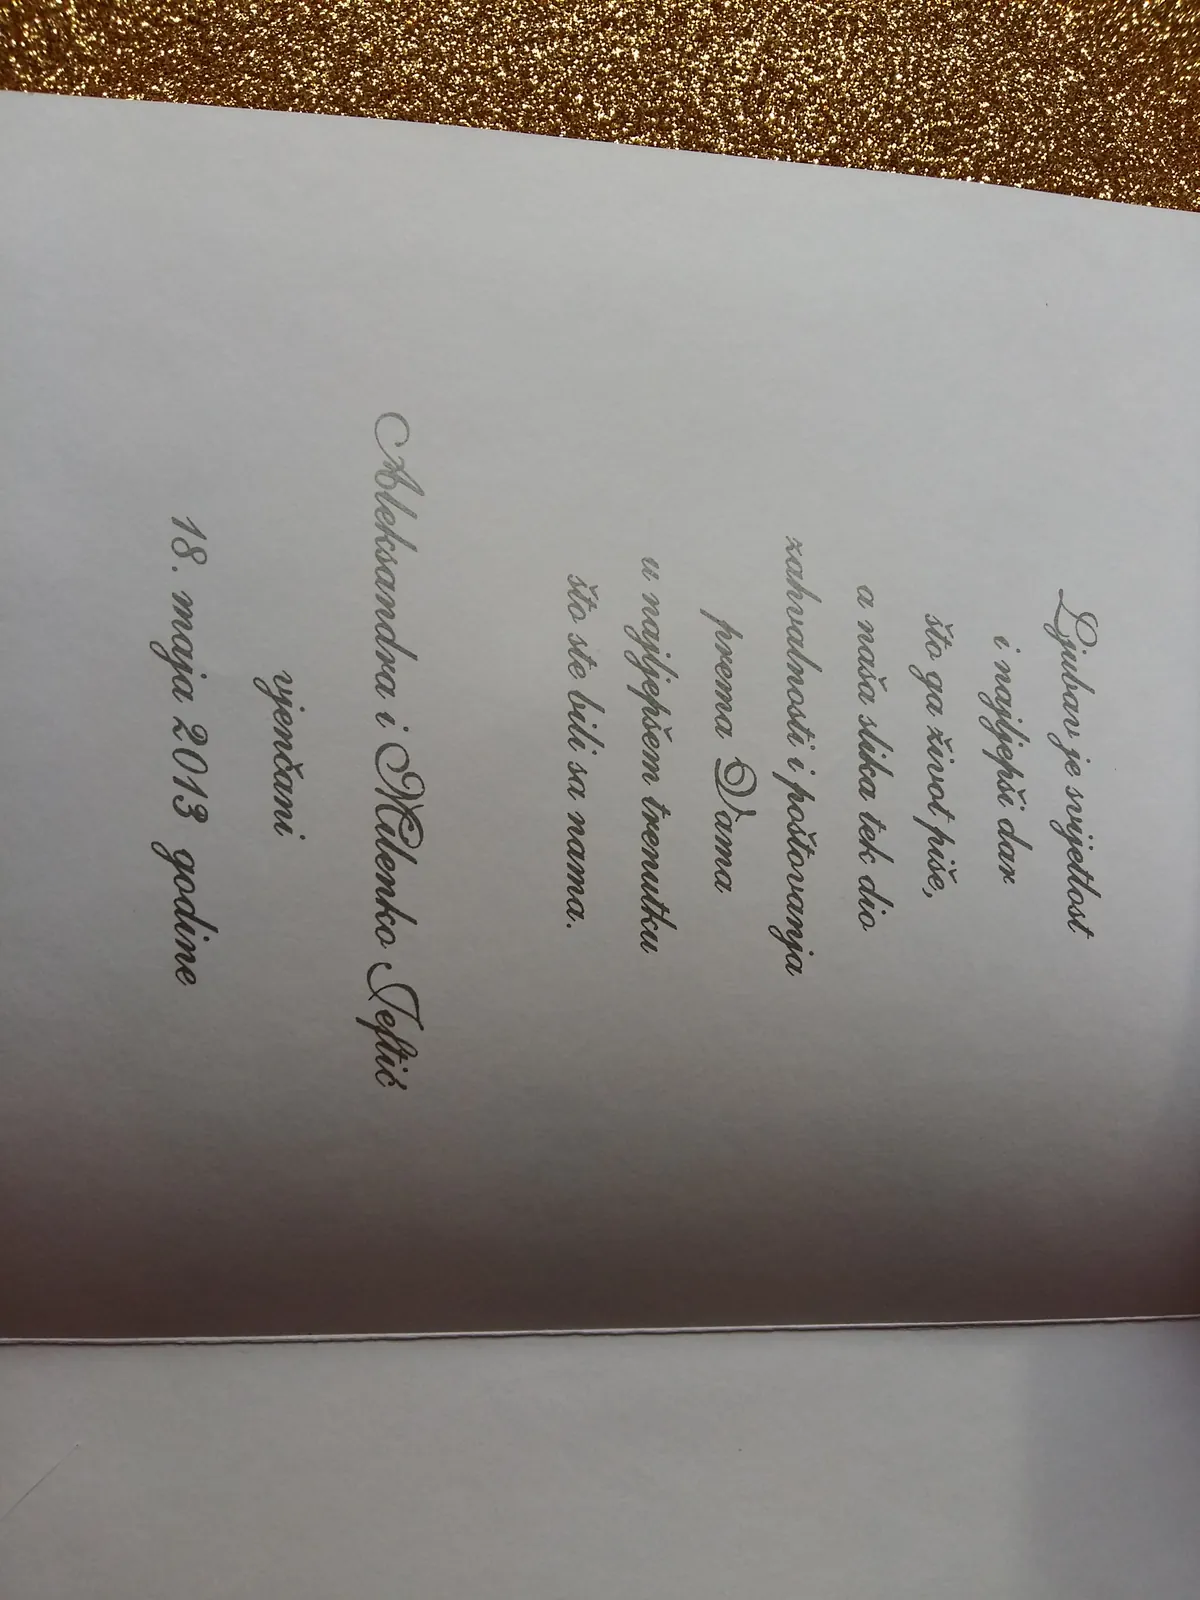 Ljubav je svijetlost
i najljepši dar
što ga život piše,
a naša slika tek dio
zahvalnosti i poštovanja
prema Vama
u najljepšem trenutku
što ste bili sa nama.
Aleksandra i Milenko Teftić
vjenčani
18. maja 2013 godine